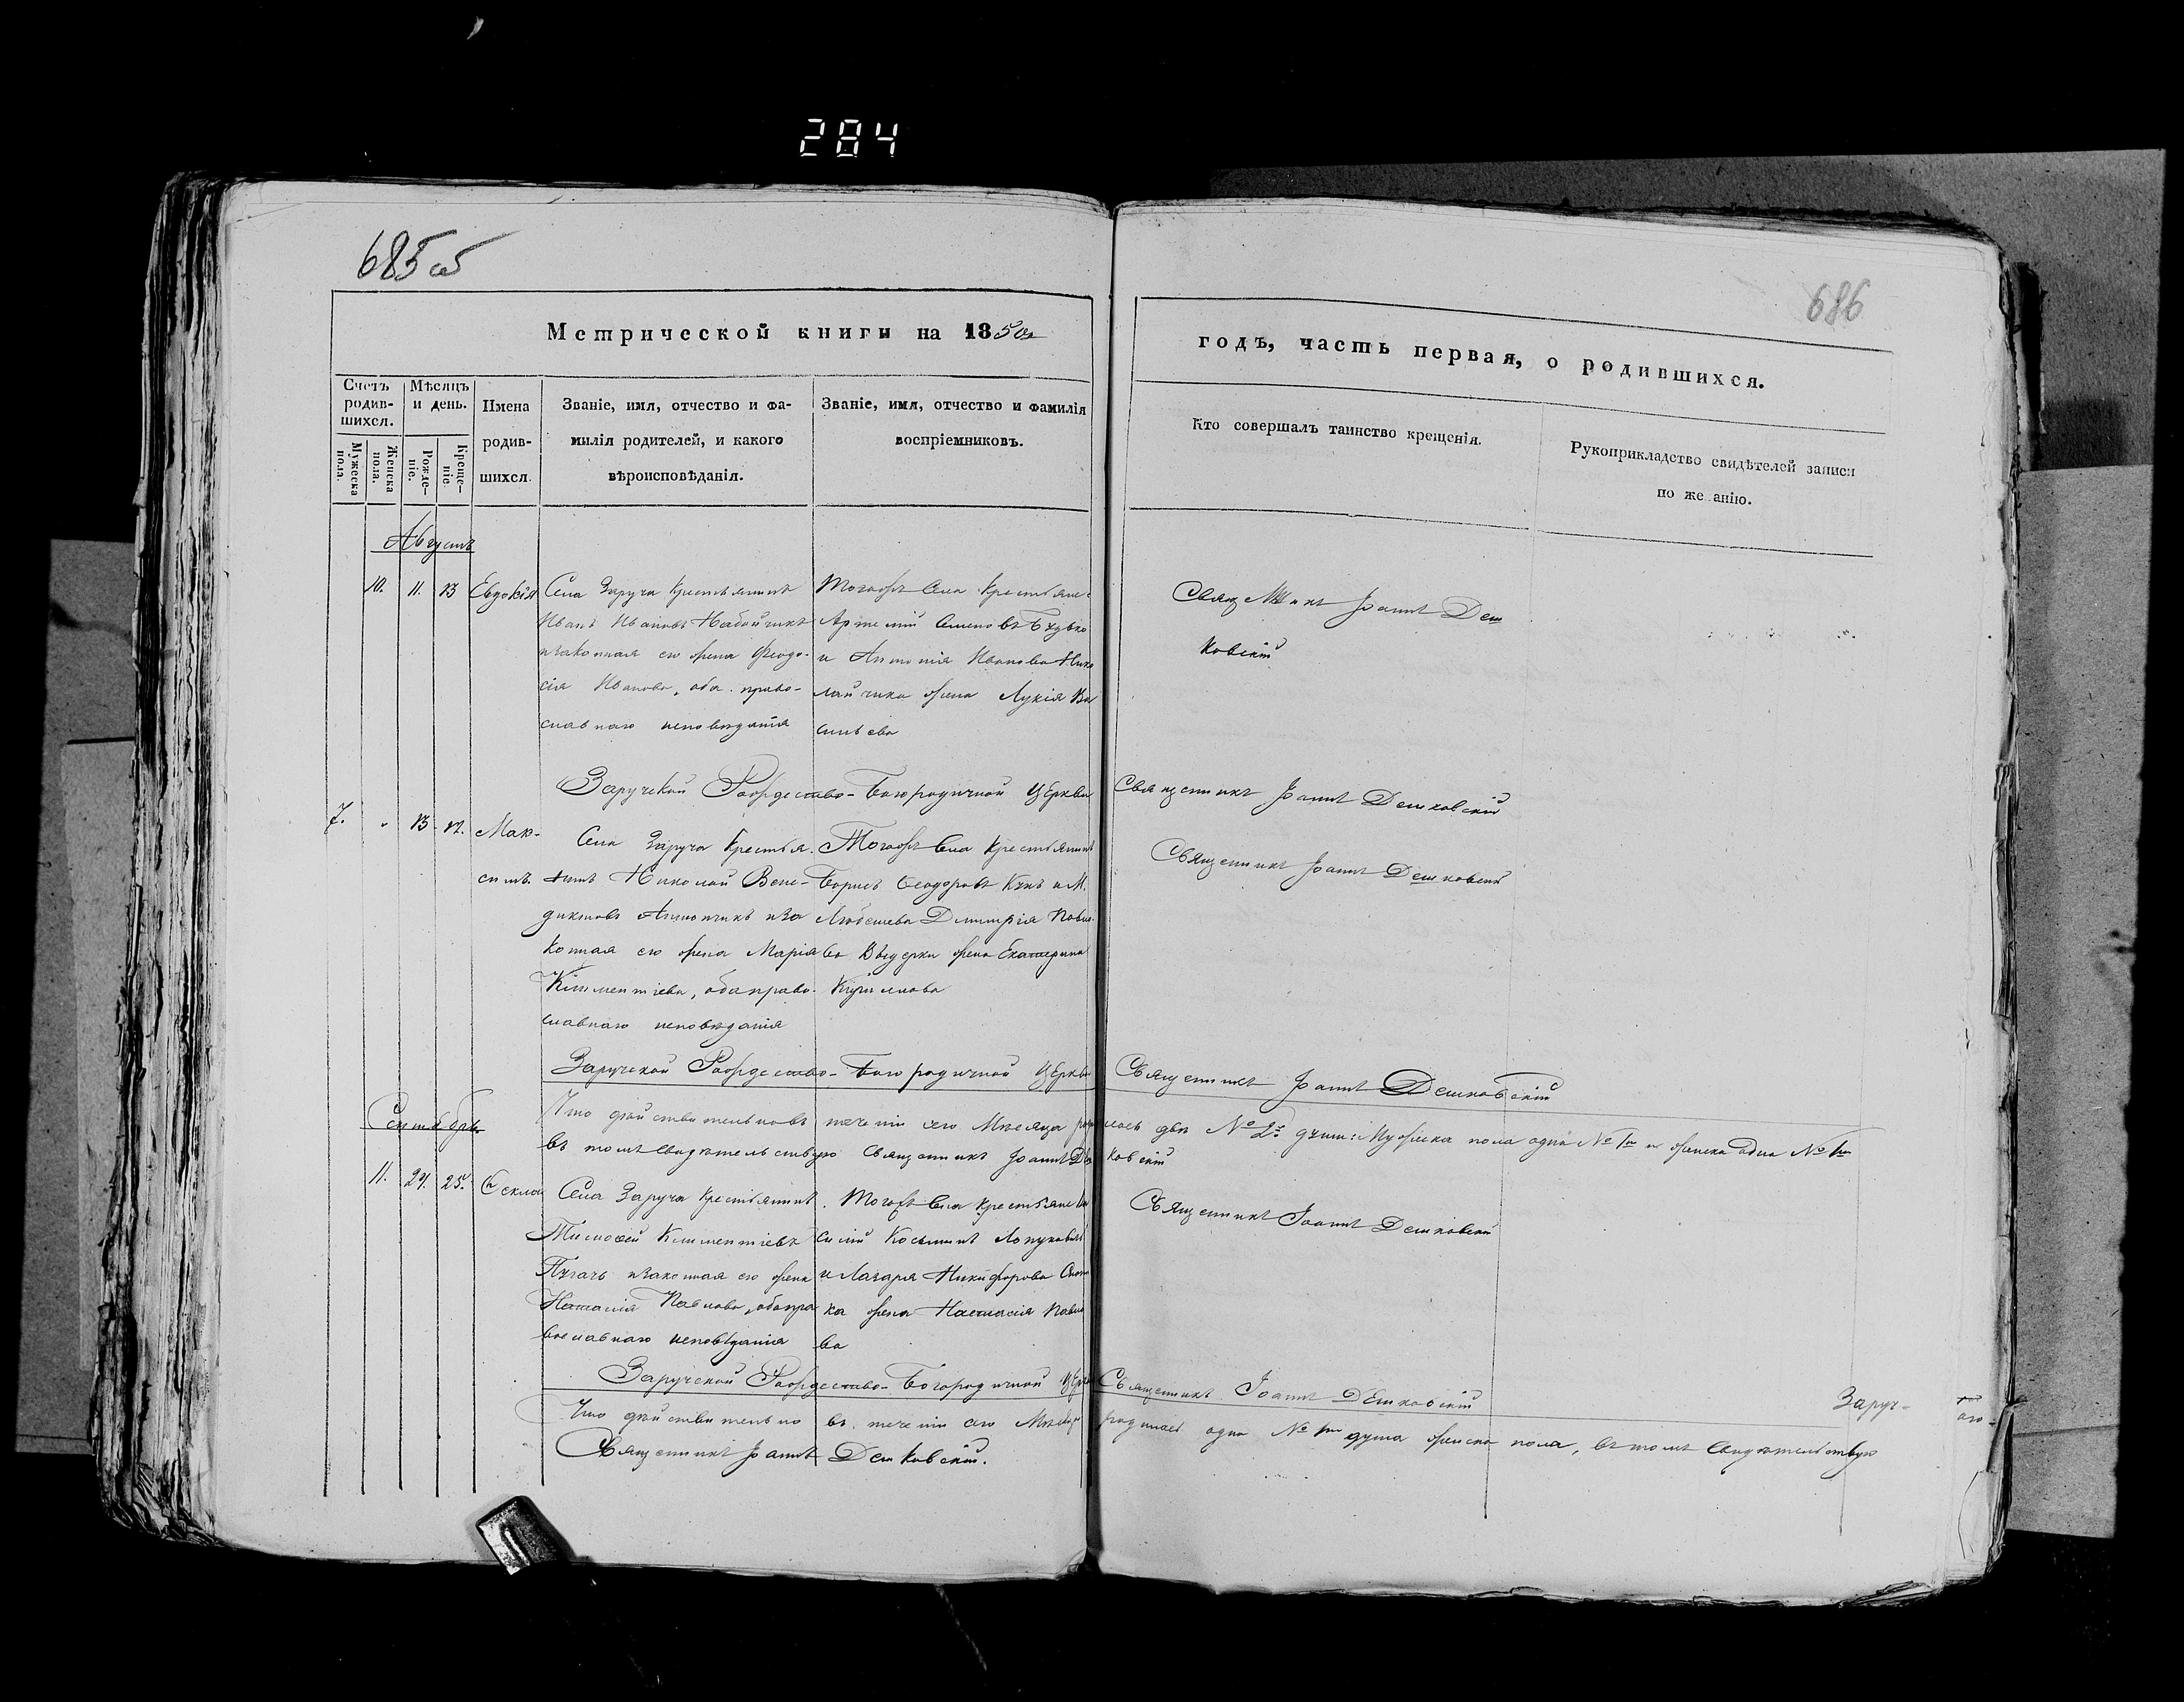 284
685 об
686
Метрической книги на 1850й
годъ, часть первая, о родившихся.
Счетъ родив-шихся.
Мѣсяцъ и день.
Мужеска пола.
Женска пола.
Рожде-ніе.
Креще-ніе
Имена
родив-
шихся.
Званіе, имя, отчество и фа-
милія родителей, и какого
вѣроисповѣданія.
Званіе, имя, отчество и фамилія
воспріемниковъ.
Кто совершалъ таинство крещенія.
Рукоприкладство свидѣтелей записи
по же анію.
Августъ
10. 11. 13 Евдокія
Села Заруча Крестьянинъ
Иванъ Ивановъ
изаконная его жена Феодо-
сія Иванова, оба право-
славнаго исповѣданія
Тогожъ Села Крестьяне
Артемій Семеновъ
и Антонія Иванова Нико
лайчика жена Лукія Ва
сильева
Священникъ Іоаннъ Деш
ковскій
Заручской Рождество-Богородичной Церкви
Священникъ Іоаннъ Дешковскій
7. 13 Мак-
симъ.
Села Заруча Крестья-
нинъ Николай Вене-
диктовъ иза
конная его жена Марія
Климентіева, обаправо-
славнаго исповѣданія
Тогожъ Села Крестьянинъ
Борисъ Феодоровъ и М.
Любешева Димитрія Павло-
ва жена Екатерина
Кириллова
Священникъ Іоаннъ Дешковскій
Заручской Рождество-Богородичной Церкви
Священникъ Іоаннъ Дешковскій
Что дѣйствительновъ теченіи сего Мѣсяца родилось двѣ № 2. души: Мужеска пола одна № 1й и женска одна № 1й
въ томъ Свидѣтельствую Священникъ Іоаннъ Дешковскій
Сентябрь
11. 24. 25. Фекла
Села Заруча Крестьянинъ
Тимофей Климентіевъ
изаконная его жена
Наталія Павлова, обапра
вославнаго исповѣданія
Тогожъ Села Крестьяне Ва
силій Косьминъ
и Лазаря Никифорова
ка жена Настасія Павло
ва
Священникъ Іоаннъ Дешковскій
Заручской Рождество-Богородичной Церкви
Священникъ Іоаннъ Дешковскій
Заруч-
Что дѣйствительно въ теченіи сего Мѣсяца родилась одна № 1й душа женска пола, въ томъ Свидѣтельствую
Священникъ Іоаннъ Дешковскій.